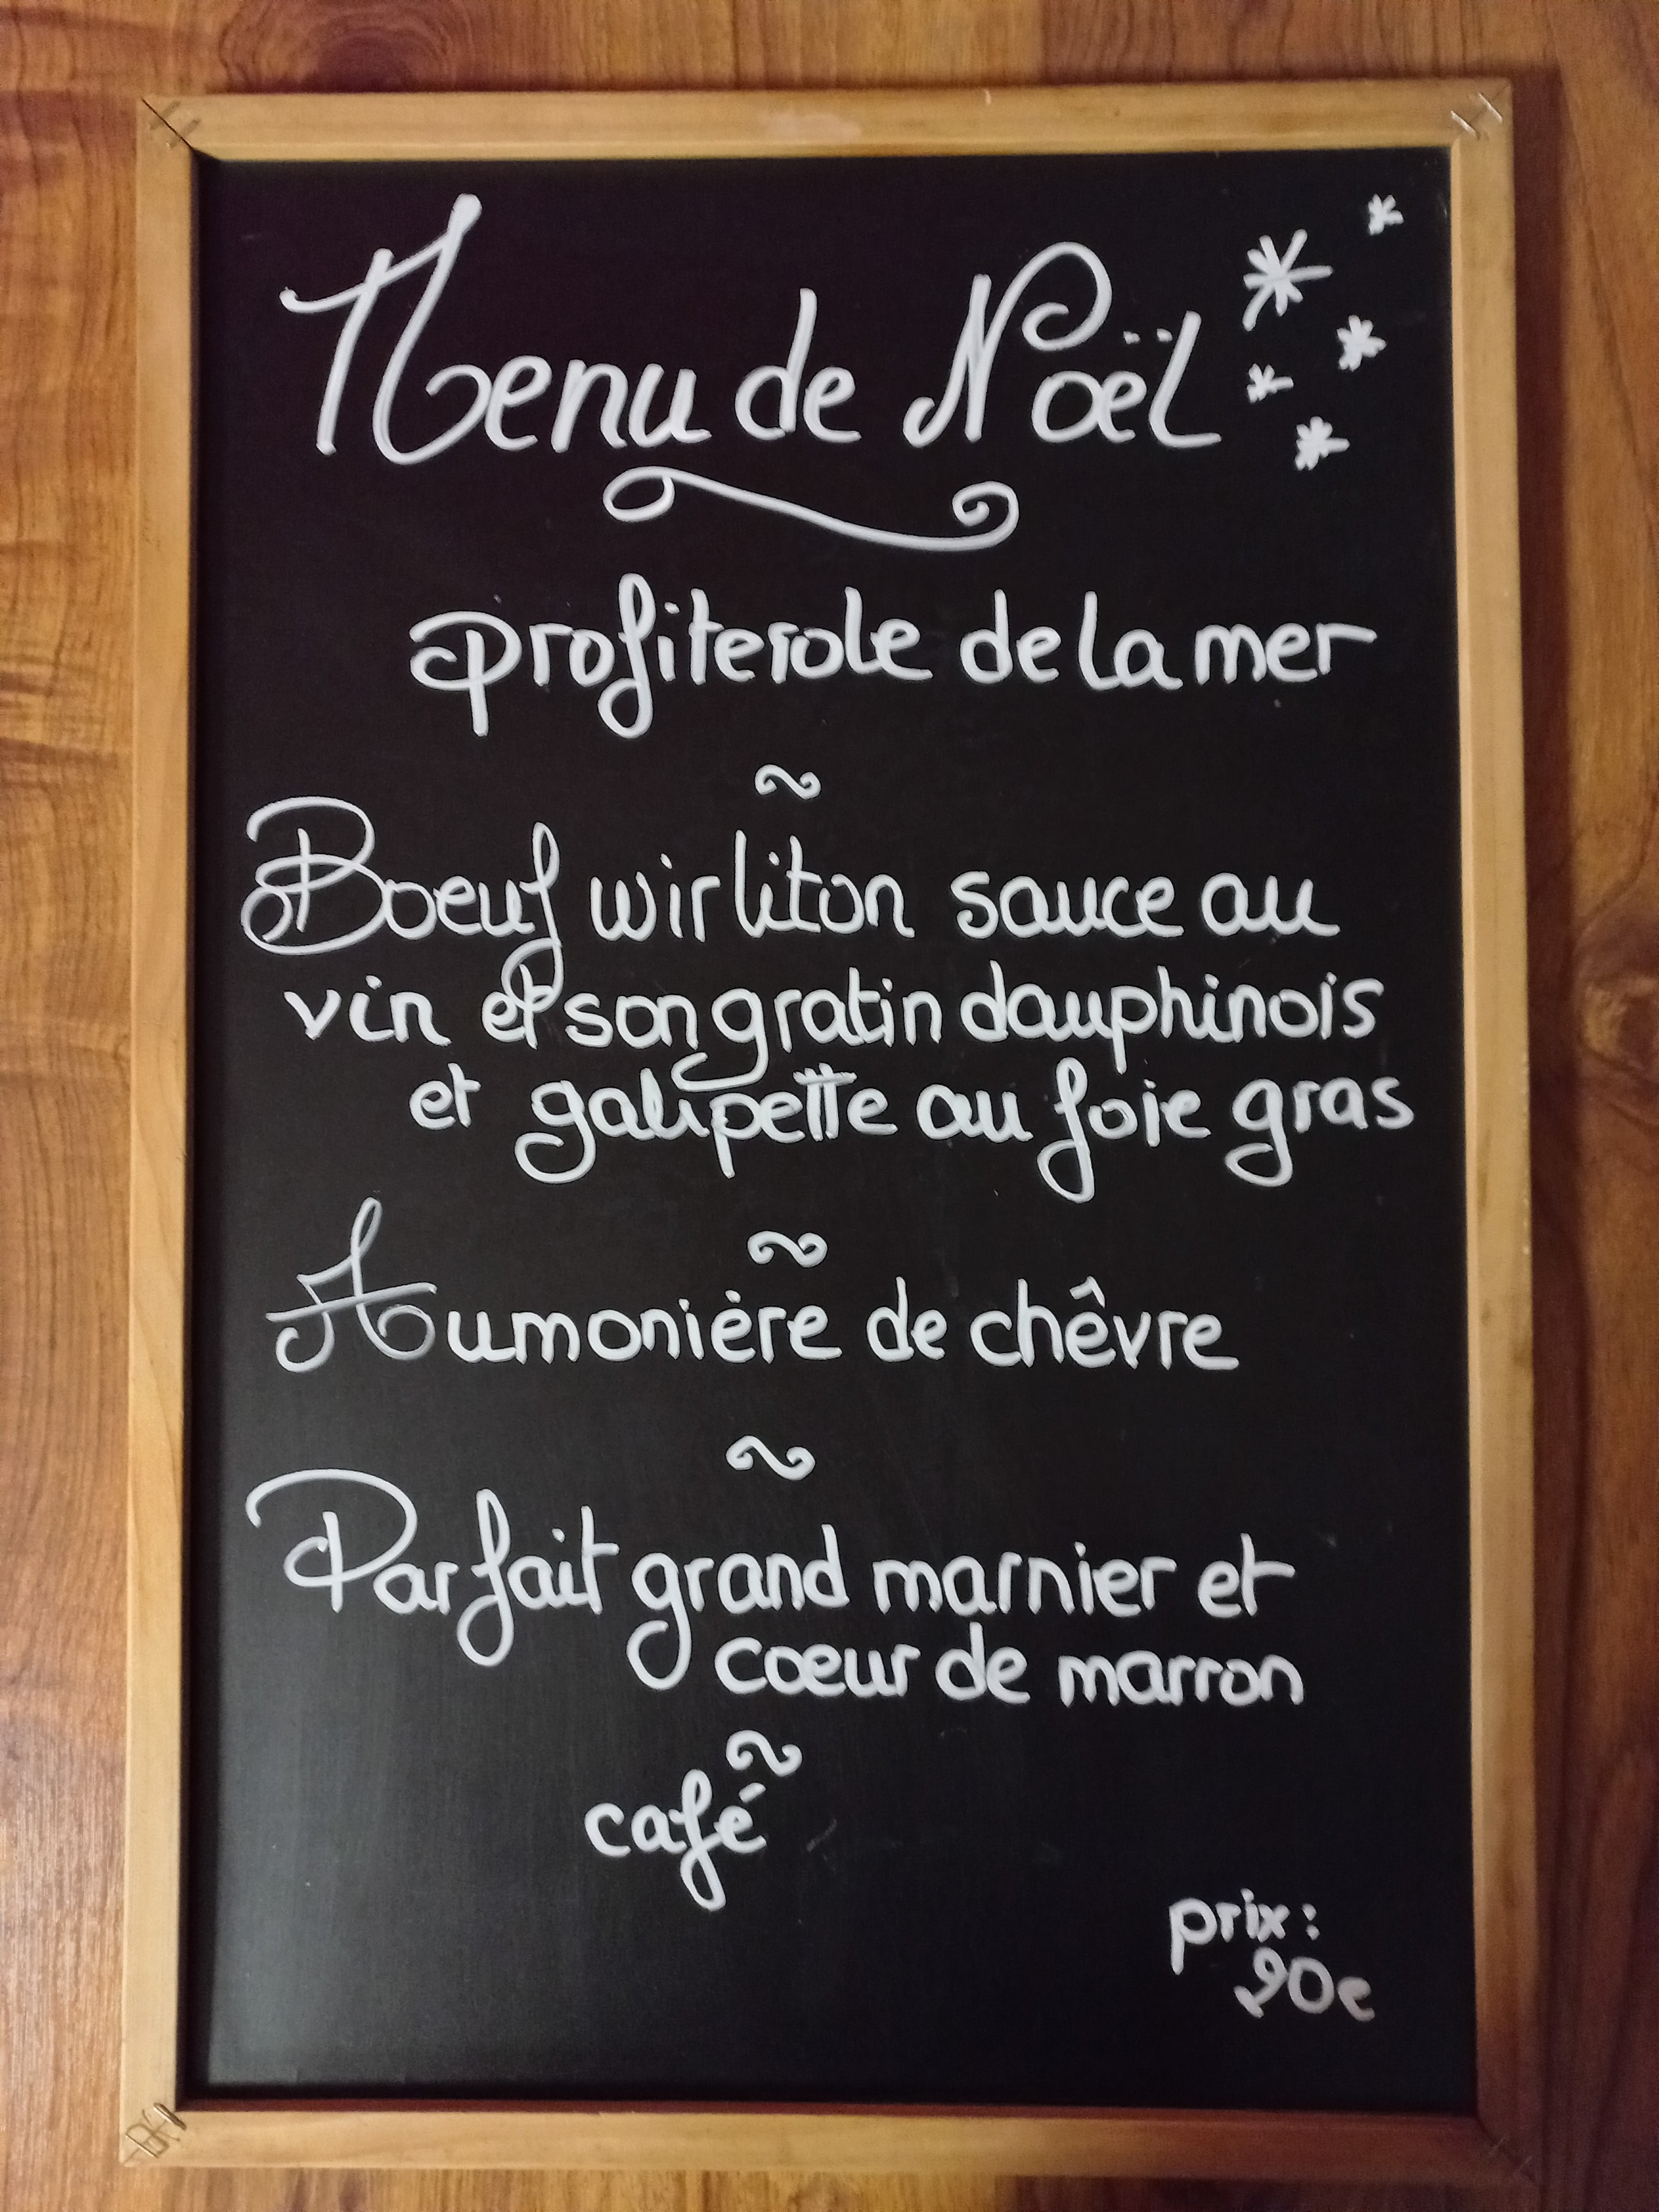 Menu de Noël
profiterole de la mer
Boeuf wirliton sauce au
vin et son gratin dauphinois
et galipette au foie gras
Aumonière de chêvre
Parfait grand marnier et
coeur de marron
café
prix :
90e